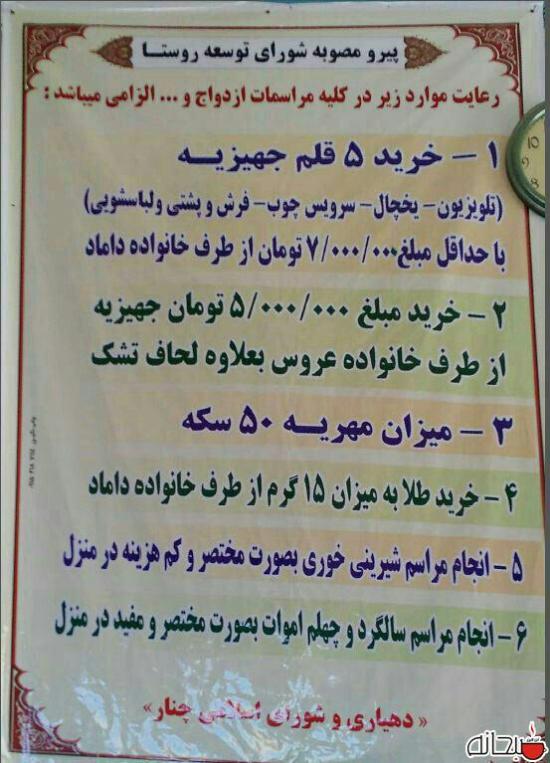 پیرو مصوبه شورای توسعه روستا
رعایت موارد زیر در کلیه مراسمات ازدواج و ... الزامی میباشد :
۱ - خرید ۵ قلم جهیزیه
(تلویزیون- یخچال- سرویس چوب- فرش و پشتی ولباسشویی)
با حداقل مبلغ ۷/۰۰۰/۰۰۰ تومان از طرف خانواده داماد
۲ - خرید مبلغ ۵/۰۰۰/۰۰۰ تومان جهیزیه
از طرف خانواده عروس بعلاوه لحاف تشک
۳ - میزان مهریه ۵۰ سکه
۴ - خرید طلا به میزان ۱۵ گرم از طرف خانواده داماد
۵ - انجام مراسم شیرینی خوری بصورت مختصر و کم هزینه در منزل
۶ - انجام مراسم سالگرد و چهلم اموات بصورت مختصر و مفید در منزل
« دهیاری و شورای اسلامی چنار»
صبحانه
10
9
8